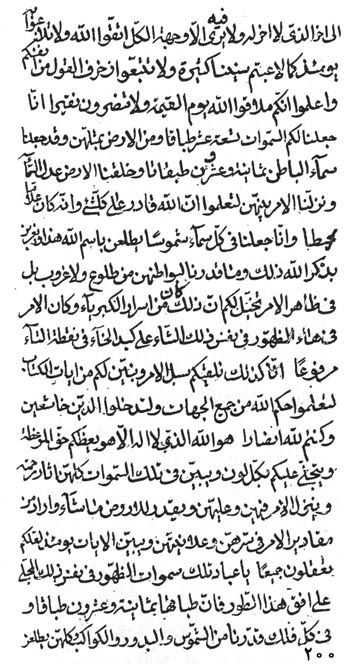 الى اخر الذى لا اخر له ولا يرى فيه الا وجهة الكل اتقوا الله ولا
يومئذ كما لاعبتم سنينا كثيرة ولا تتبعوا زخرف القول من
واعلموا انكم ملاقوا الله يوم القيمة ولا تضرون نقيرا انا
جعلنا لكم السموات تسعة عشر طباقا ومن الارض مثلهن وقد جعلنا
سماء الباطن ثمانية وعشرين طبقاتا وخلقنا الارض عدل السماء
ونزلنا الامر بينهن لتعلموا ان الله قادر على كلشئ وانه كان علاما
محيطا وانا جعلنا فى كل سماء شموسا يطلعن باسم الله هذا ويغربن
بذكر الله ذلك وما قدرنا لبواطنهن من طلوع ولا غروب بل
فى ظاهر الامر تخيل لكم ان ذلك كان من اسرار الكبرياء وكان الامر
فى هاء الظهور فى نفس ذلك الثناء على كبد الحاء فى نقطة الثناء
مرفوعا انا كذلك نلقيكم سبل الامر ونبين لكم من ايات الكتاب
لتعلموا حكم الله من جميع الجهات ولتدخلوا الدين خاشعين
وكنتم لله انصارا هو الله الذى لا اله الا هو يعظكم حق الموعظة
ويتجلى عليكم بكل لون ويبين فى تلك السموات كلهن اثار رحمته
وينزل الامر فيهن وعليهن ويعيد ولدا روض ما شاء واراد
مقادير الامر فى سرهن وعلانيتهن ويبين الايات يومئذ لعلكم
تعقلون جميعا يا عباد تلك سموات الظهور فى نفس ذلك المجلى
على افق هذا الطور فان طباقها ثمانية وعشرون طباقا و
فى كل فلك قدرنا من الشموس والبدور والكواكب كلهن يطلعن
٢٠٠